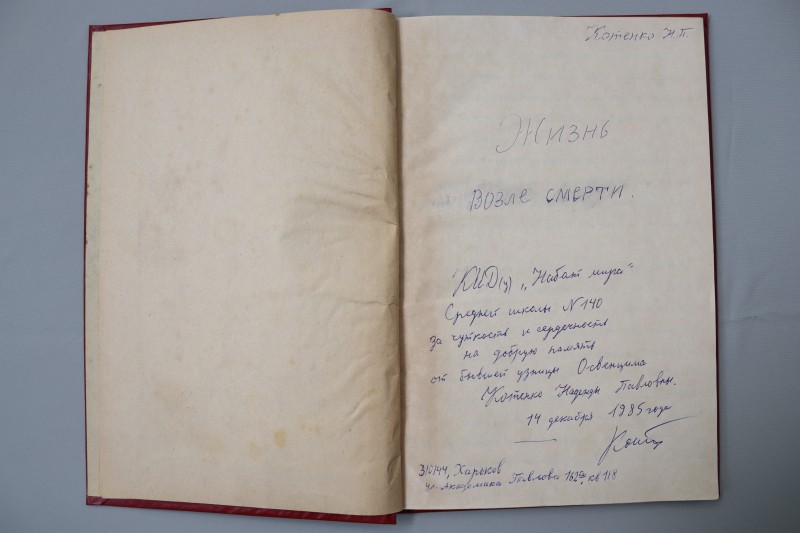 Котенко Н.П.
Жизнь
возле смерти.
КИД(у) „Набат мира"
Средней школы N 140
за чуткость и сердечность
на добрую память
от бывшей узницы Освенцима
Котенко Надежды Павловны.
14 декабря 1985 года
310144, Харьков
ул. Академика Павлова 162 кв 118